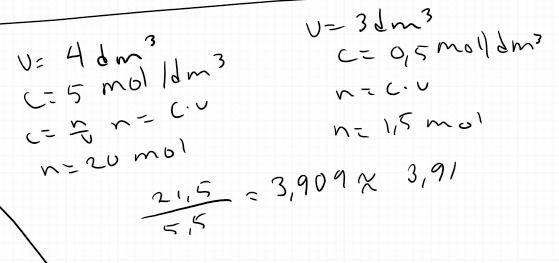 V= 4 dm³
C= 5 mol/dm³
C= n/V n= C·V
n= 20 mol
V= 3dm³
C= 0,5 mol/dm³
n= C·V
n= 1,5 mol
21,5/5,5 = 3,909 ≈ 3,91